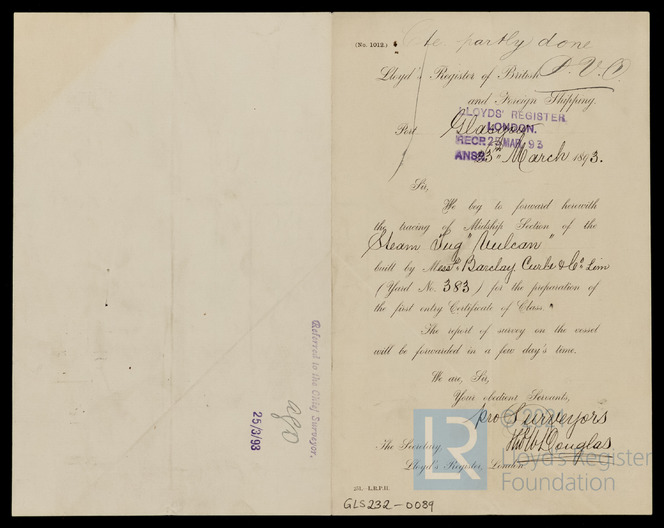 Referred to the Chief Surveyor.
ago
25/3/93
(No. 1012.)
to be partly done
Lloyd's Register of British
and Foreign Shipping.
LLOYDS' REGISTER
LONDON.
RECP. 25 MAR. 93
ANSD.
Port Glasgow
23rd March 1893.
Sir,
We beg to forward herewith
the tracing of Midship Section of the
Steam Tug "Vulcan"
built by Messrs Barclay Curle & Co Lim
(Yard No. 383) for the preparation of
the first entry Certificate of Class.
The report of survey on the vessel
will be forwarded in a few day's time.
We are, Sir,
Your obedient Servants,
pro Surveyors
Douglas
The Secretary
Lloyd's Register, London
L.R.P.H.
GLS232-0089
LR
© 2021
Lloyd's Register
Foundation